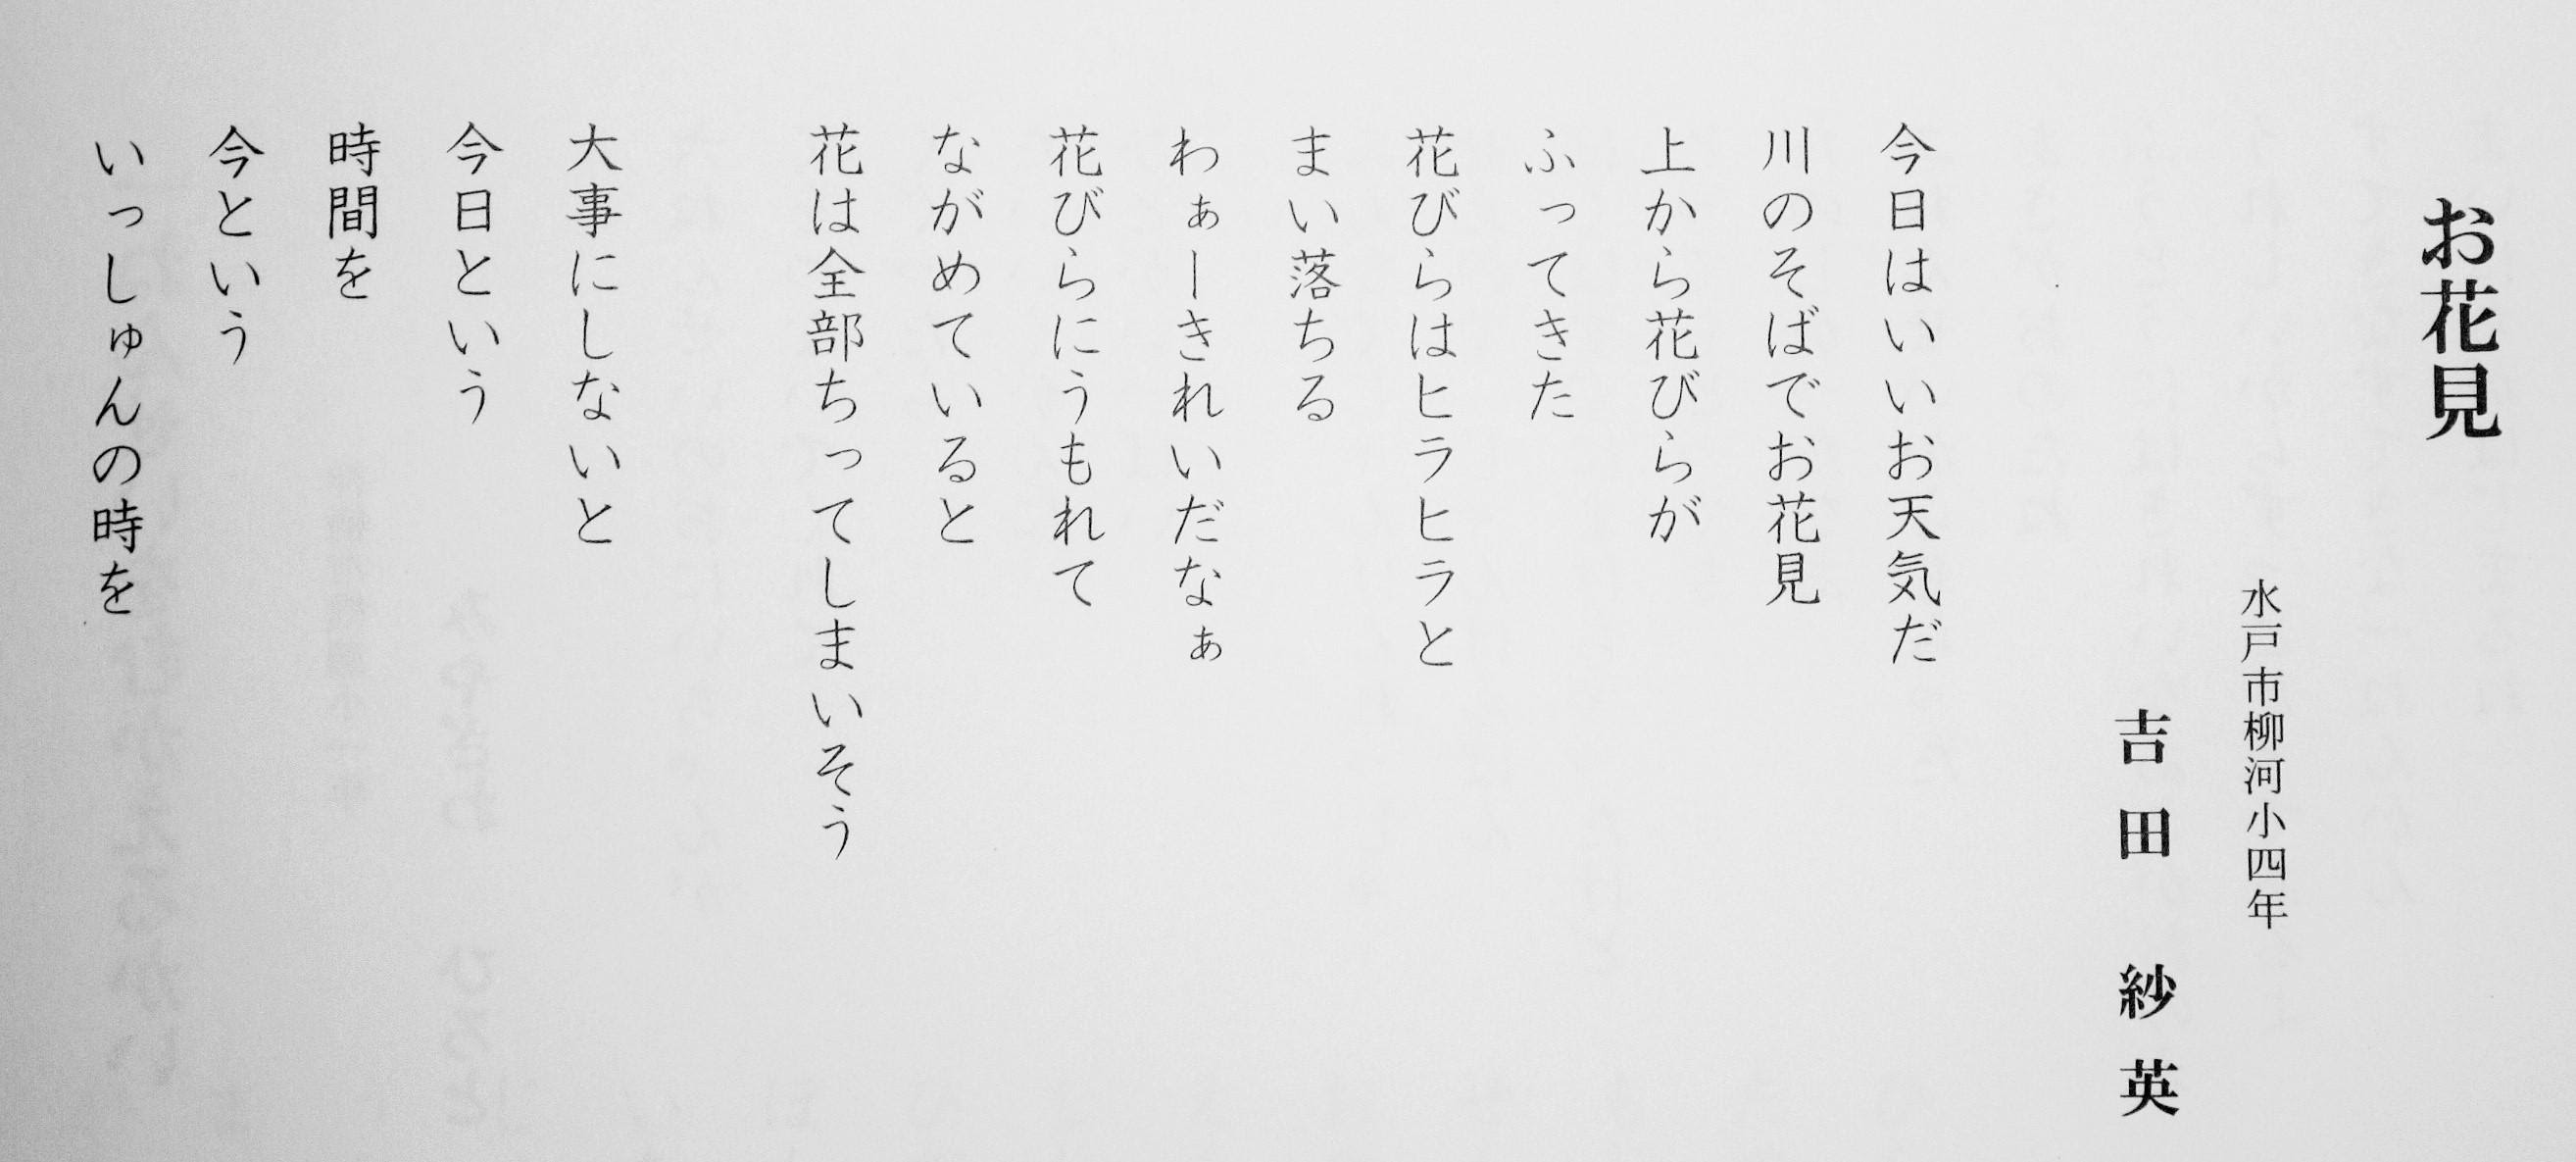 お花見
水戸市柳河小四年
吉田 紗英
今日はいいお天気だ
川のそばでお花見
上から花びらが
ふってきた
花びらはヒラヒラと
まい落ちる
わぁーきれいだなぁ
花びらにうもれて
ながめていると
花は全部ちってしまいそう
大事にしないと
今日という
時間を
今という
いっしゅんの時を